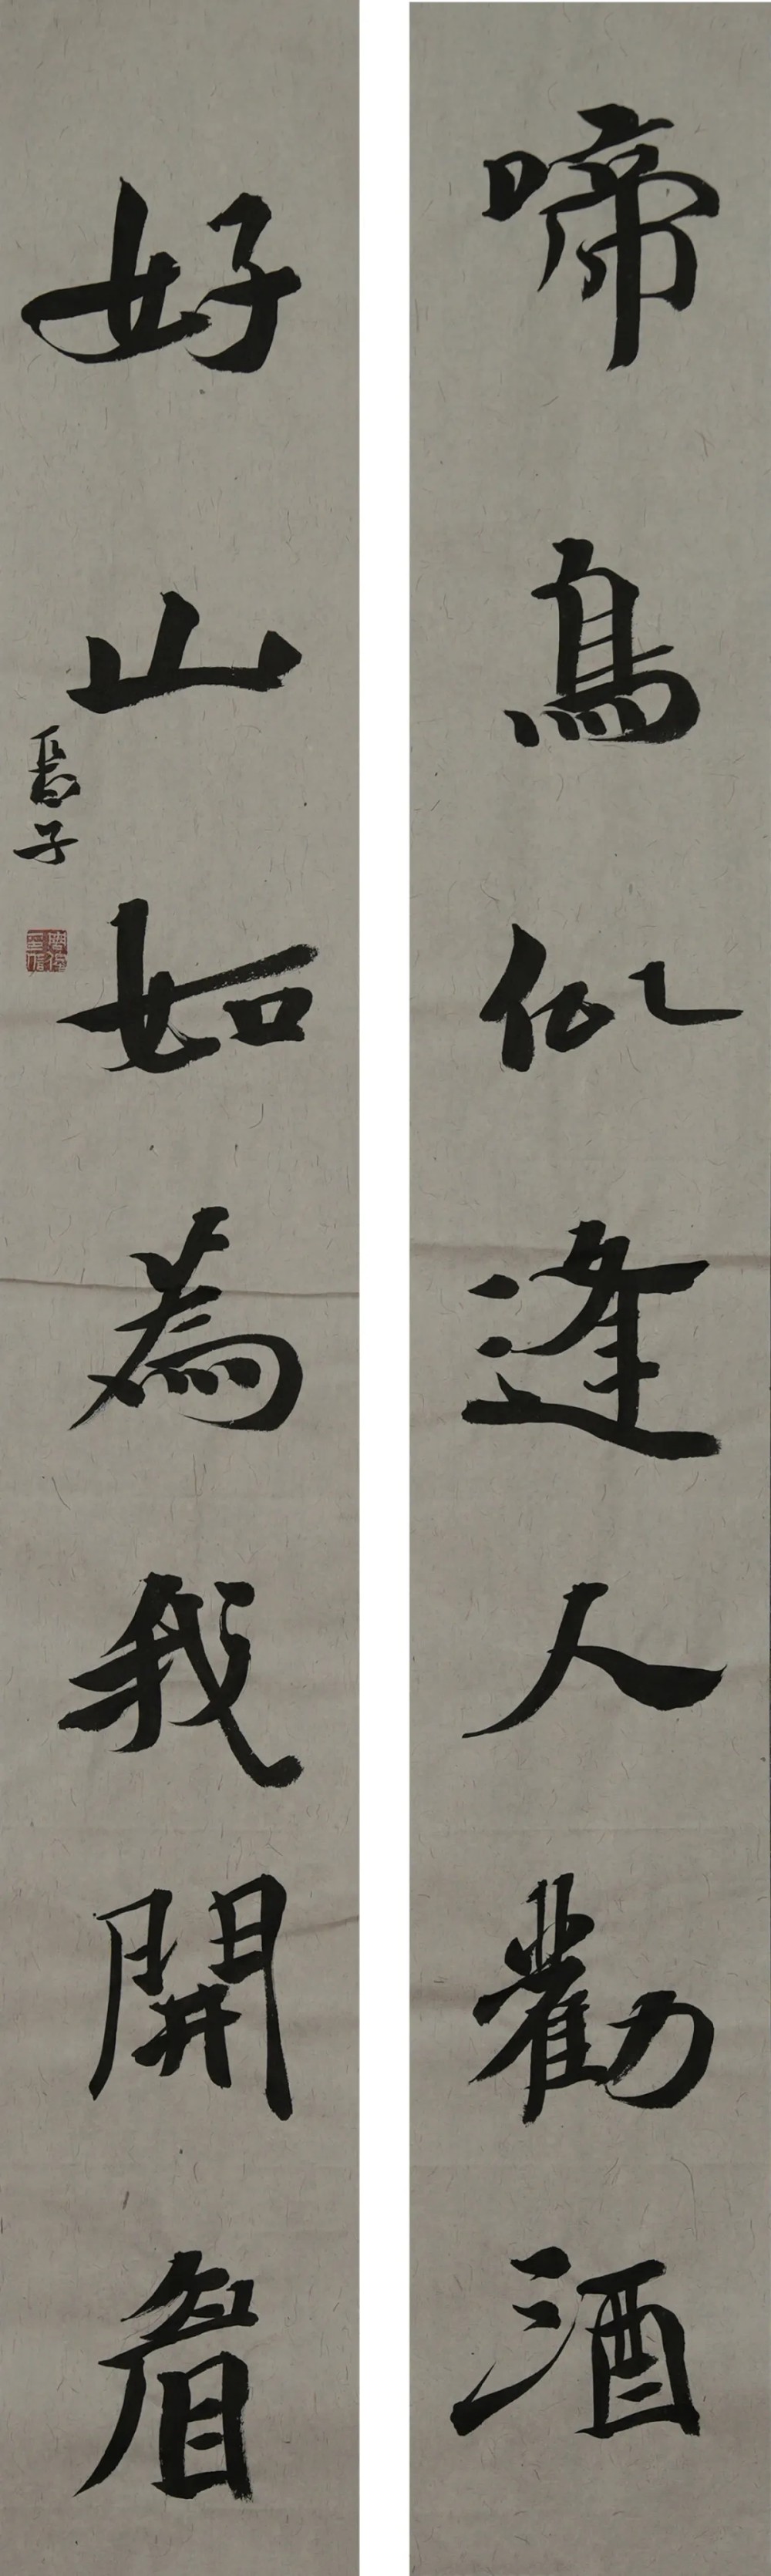 啼鳥似逢人勸酒
好山如為我開眉